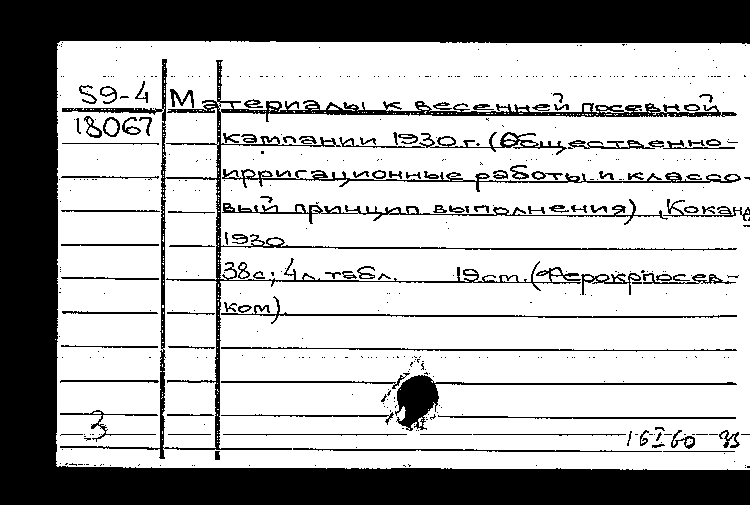 59-4 Материалы к весенней посевной
18067 кампании 1930 г. (Общественно-
ирригационные работы и классо-
вый принцип выполнения), Коканд
1930
38с; 4 л. табл. 19 ст. (Ферокрпосев-
ком).
3
16 I 60